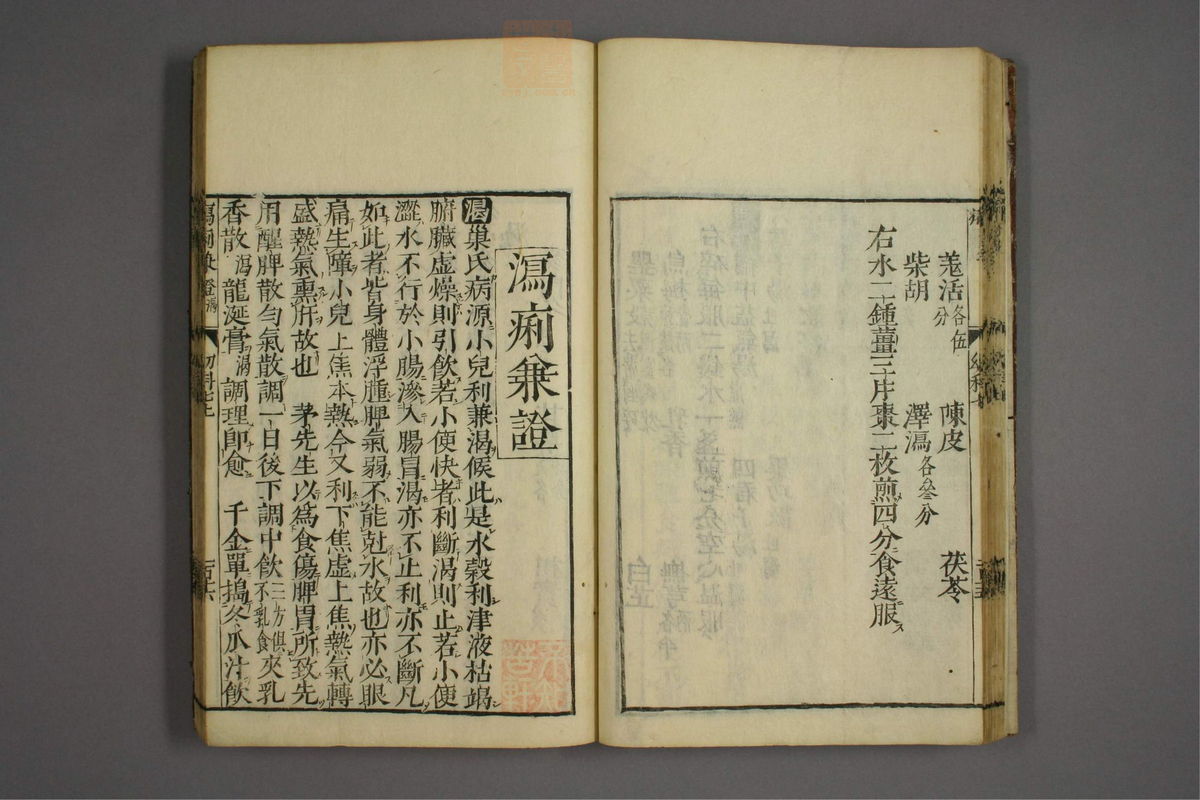 羗活各伍分　陳皮　茯苓
柴胡　澤瀉各叄分
右水二鍾薑三片棗二枚煎四分食遠服
瀉痢兼證
渴巢氏病源小兒利兼渴候此是水穀利津液枯竭
腑臟虛燥則引飲若小便快者利斷渴則止若小便
澀水不行於小腸滲入腸胃渴亦不止利亦不斷凡
如此者皆身體浮腫脾氣弱不能尅水故也亦必眼
痛生障小兒上焦本熱今又利下焦虛上焦熱氣轉
盛熱氣熏肝故也　茅先生以爲食傷脾胃所致先
用醒脾散勻氣散調一日後下調中飲二方俱不乳食夾乳
香散瀉龍涎膏渴調理即愈　千金單搗冬瓜汁飲
瀉痢兼證　幼科七上